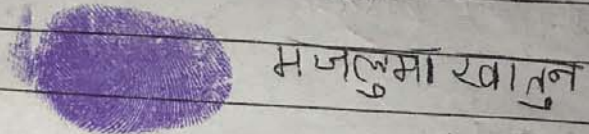 मजलुमा खातुन